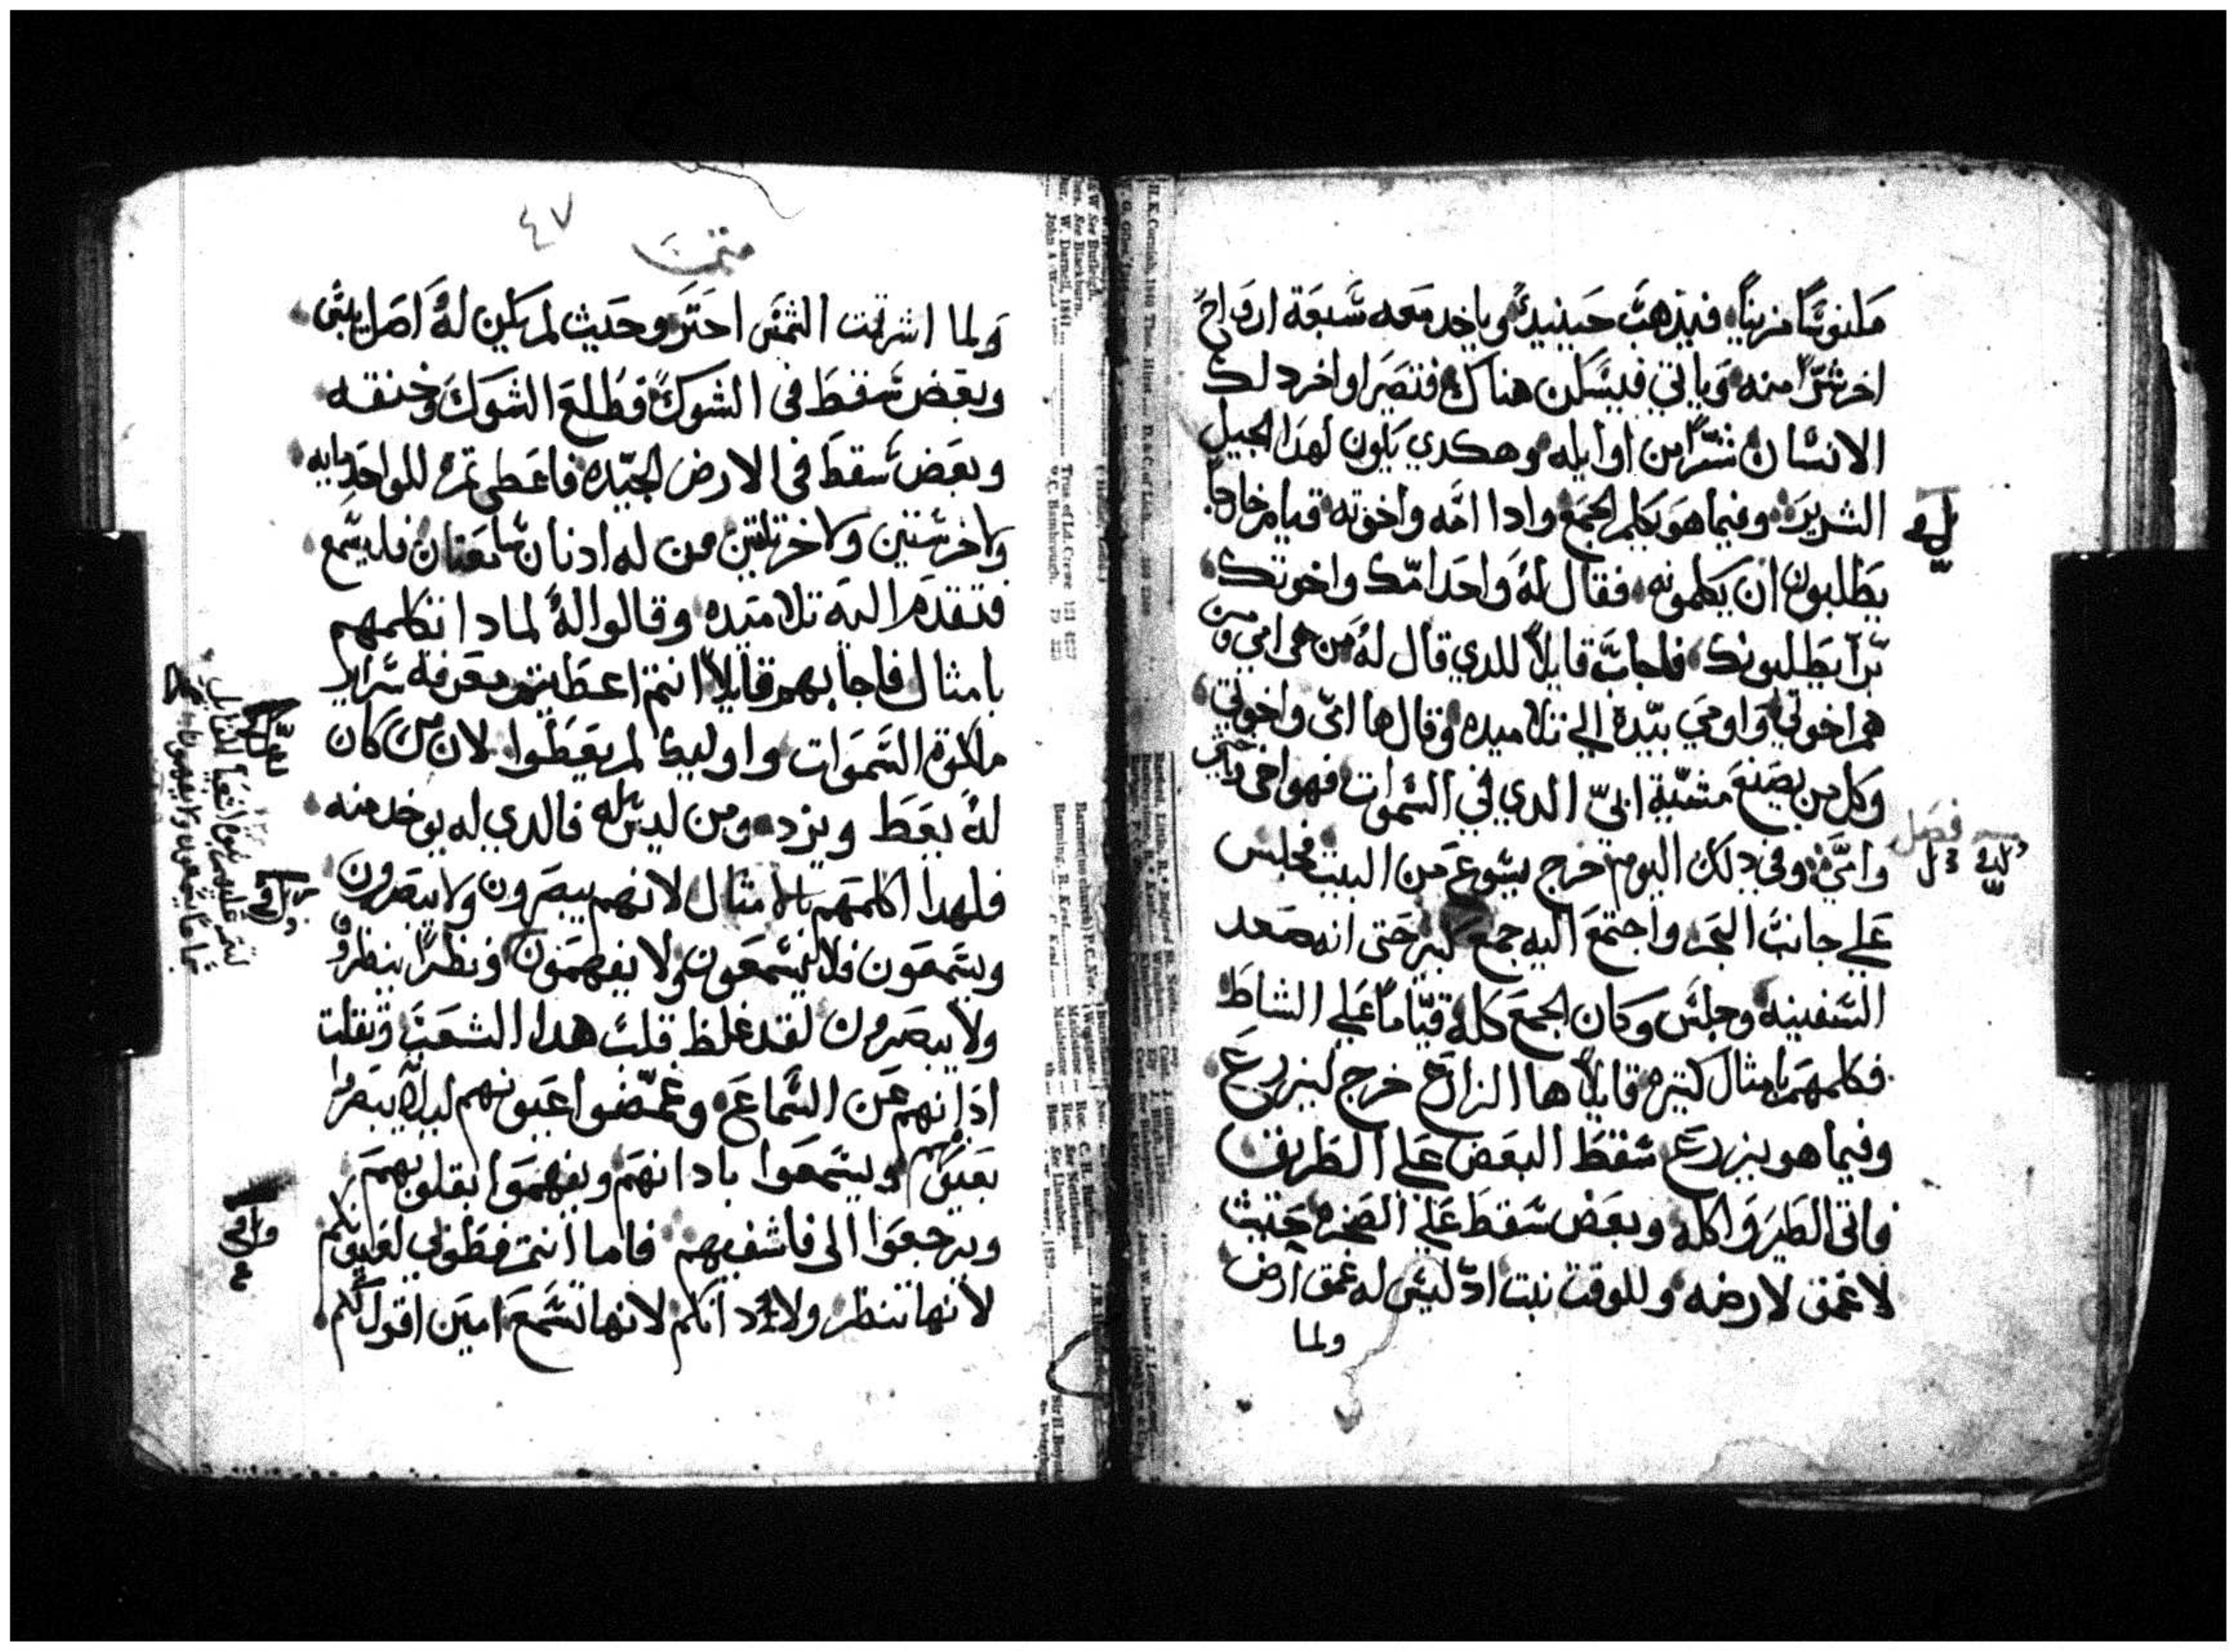 مكنوسًا مزينًا فيذهب حينيدٍ وياخد معه سبعة ارواح
اخر شرًا منه وياتي فيسكن هناك فتصير اواخر دلك
الانسان شرًا من اوايله وهكدي يكون لهدا الجيل
الشرير وفيما هو يكلم الجمع وادا امه واخوته قيام خارجًا
يطلبون ان يكلموه فقال له واحد امك واخوتك
برّا يطلبونك فاجاب قايلًا للدي قال له من هي امي ومن
هم اخوتي واومي بيده الي تلاميده وقال ها امي واخوتي
وكل من يصنع مشية ابي الدي في السموات فهو اخي
وامي وفي دلك اليوم خرج يسوع من البيت فجلس
فصل
علي جانب البحر واجتمع اليه جمع كبير حتى انه صعد
السفينه وجلس وكان الجمع كله قيامًا علي الشاط
فكلمهم بامثال كتيره قايلًا ها الزارع خرج ليزرع
وفيما هو يزرع سقط البعض علي الطريق
فاتى الطير واكله وبعض سقط علي الصخره حيث
لا عمق لارضه وللوقت نبت اد ليس له عمق ارض
ولما
٤٧
متى
ولما اشرقت الشمس احتر وحيث لم يكن له اصل يبس
وبعض سقط في الشوك فطلع الشوك وخنقه
وبعض سقط في الارض الجيده فاعطى تمره للواحد مايه
ولاخر ستين ولاخر تلتين من له ادنان سامعتان فليسمع
فتقدم اليه تلاميده وقالوا له لمادا تكلمهم
بامثال فاجابهم قايلًا انتم اعطيتم معرفة سراير
ملكوة السموات واوليك لم يعطوا لان من كان
له يعط ويزد ومن ليس له فالدي له يوخد منه
فلهدا اكلمهم بالامثال لانهم يبصرون ولا يبصرون
ويسمعون فلا يسمعون ولا يفهمون ونظرًا ينظروا
ولا يبصرون لقد غلظ قلب هدا الشعب وتقلت
ادانهم عن السماع وغمضوا عيونهم ليلا يبصروا
بعيونهم ويسمعوا بادانهم ويفهموا بقلوبهم
ويرجعوا الى فاشفيهم فاما انتم فطوبي لعيونكم
لانها تنظر ولادانكم لانها تسمع امين اقول لكم